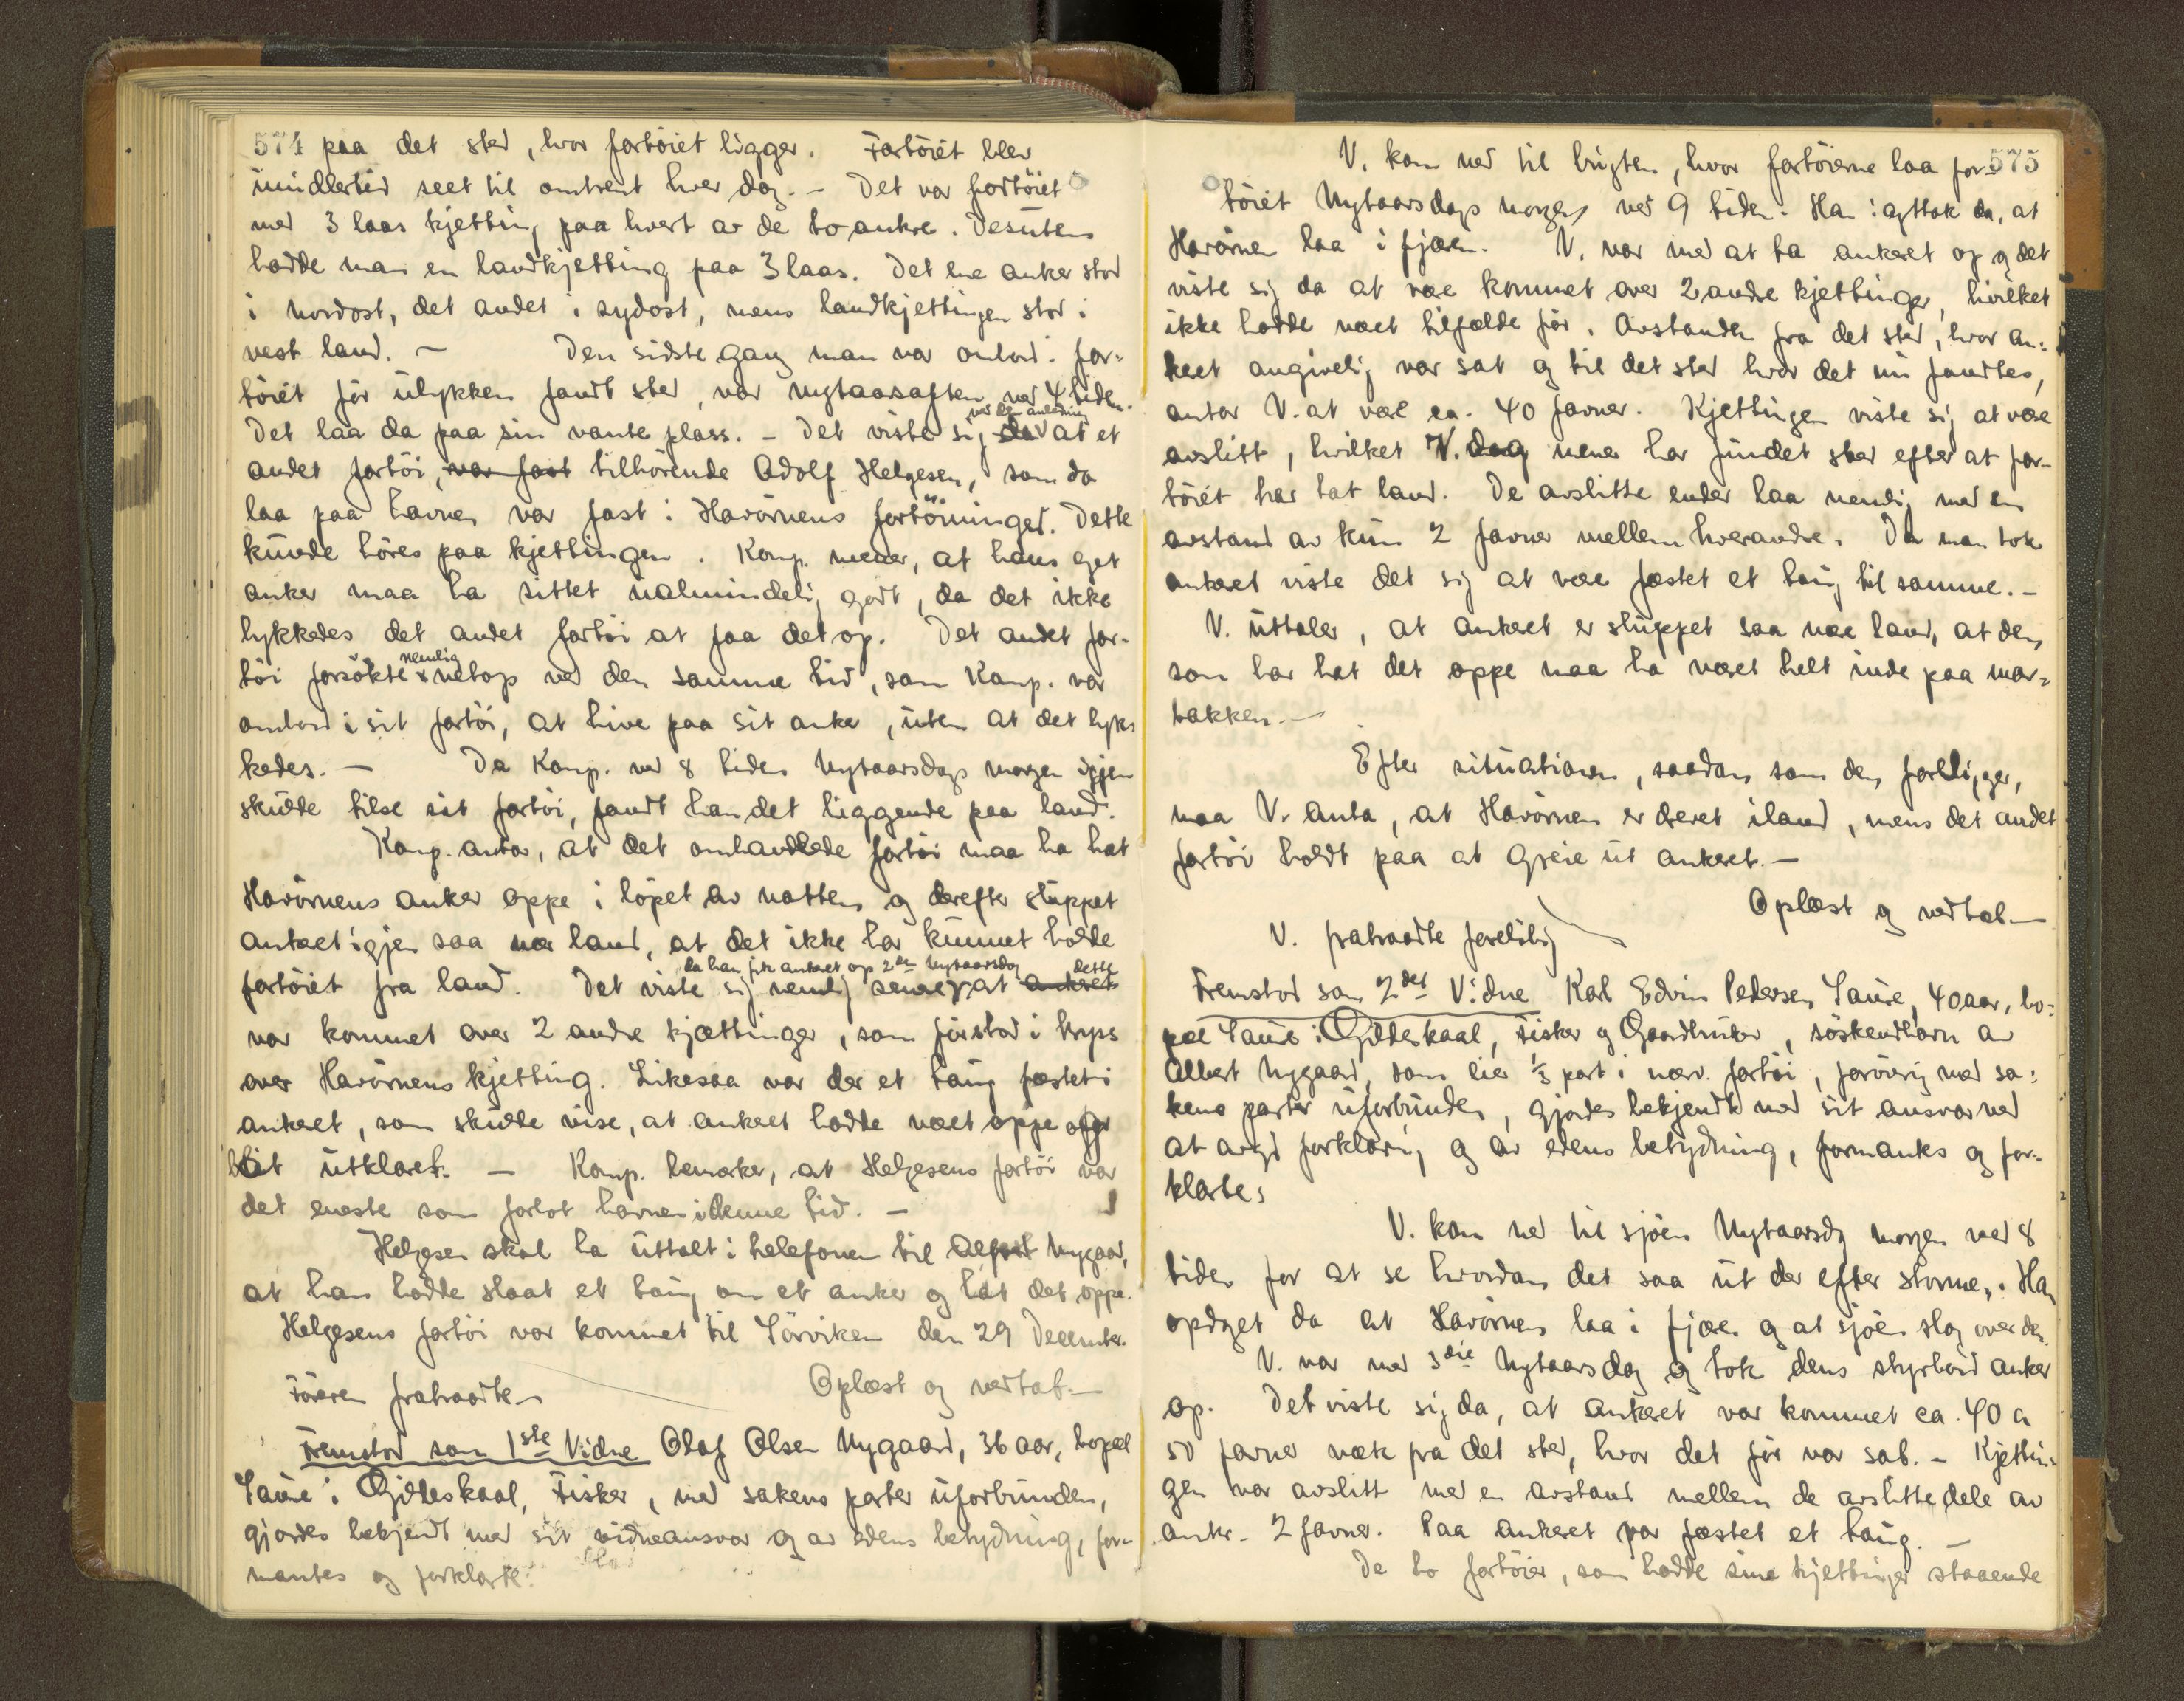 574 paa det sted, hvor fartöiet ligger. Fartöiet blev
imidlertid seet til omtrent hver dag. - Det var fortöiet
med 3 laas kjetting paa hvert av de to ankre. Desuten
hadde man en landkjetting paa 3 laas. Det ene anker stod
i nordost, det andet i sydost, mens landkjettingen stod i
vest land. - Den sidste gang man var ombord i far-
töiet för ulykken fandt sted, var Nytaarsaften ved 4 tiden.
Det laa da paa sin vante plass. - Det viste sig da ved den anledning at et
andet fartöi, var fast tilhörende Adolf Helgesen, som da
laa paa havnen var fast i Havörnens fortöininger. Dette
kunde höres paa kjettingen. Komp. mener, at hans eget
anker maa ha sittet ualmindelig godt, da det ikke
lykkedes det andet fartöi at faa det op. Det andet far-
töi forsökte nemlig netop ved den samme tid, som Komp. var
ombord i sit fartöi, at hive paa sit anker, uten at det lyk-
kedes. - Da Komp. ved 8 tiden Nytaarsdags morgen igjen
skulde tilse sit fartöi, fandt han det liggende paa land.
Komp. antar, at det omhandlede fartöi maa ha hat
Havörnens anker oppe i löpet av natten og derefter sluppet
ankeret igjen saa nær land, at det ikke har kunnet holde
fartöiet fra land. Det viste sig nemlig senere da han fik ankeret op 2den Nytaarsdag at ankeret dette
var kommet over 2 andre kjættinger, som för stod i kryps
over Havörnens kjetting. Likesaa var der et taug fæstet i
ankeret, som skulde vise, at ankeret hadde været oppe og
blit utklaret. - Komp. bemerker, at Helgesens fartöi var
det eneste som forlot havnen i denne tid. -
Helgesen skal ha uttalt i telefonen til Alfred Nygaard,
at han hadde slaat et taug om et anker og hat det oppe.
Helgesens fartöi var kommet til Sörviken den 29 December.
Oplæst og vedtat.-
Föreren fratraadte
Fremstod som 1ste Vidne Olaf Olsen Nygaard, 36 aar, bopæl
Saura i Gildeskaal, Fisker, med sakens parter uforbunden,
gjordes bekjendt med sit vidneansvar og av edens betydning, for-
mantes og forklarte:
575
V. kom ned til bugten, hvor fartöierne laa for-
töiet Nytaarsdags morgen ved 9 tiden. Han iagttok da, at
Havörnen laa i fjæren. V. var med at ta ankeret op og det
viste sig da at være kommet over 2 andre kjettinger, hvilket
ikke hadde været tilfælde för. Avstanden fra det sted, hvor an-
keret angivelig var sat og til det sted hvor det nu fandtes,
antar V. at være ca. 40 favner. Kjettingen viste sig at være
avslitt, hvilket V. dog mener har fundet sted efter at far-
töiet har tat land. De avslitte ender laa nemlig med en
avstand av kun 2 favner mellem hverandre. Da man tok
ankeret viste det sig at være fæstet et taug til samme. -
V. uttaler, at ankeret er sluppet saa nær land, at den,
som har hat det oppe maa ha været helt inde paa mar-
bakken. -
Efter situationen, saadan som den foreligger,
maa V. anta, at Havörnen er drevet iland, mens det andet
fartöi holdt paa at greie ut ankeret. -
Oplæst og vedtat. -
V. fratraadte forelöbig
Fremstod som 2det Vidne Karl Edvin Pedersen Saura, 40 aar, bo-
pæl Saura i Gildeskaal, Fisker og Gaardbruker, söskendbarn av
Albert Nygaard, som eier 1/3 part i nærv. fartöi, forövrig med sa-
kens parter uforbunden, gjordes bekjendt med sit ansvar ved
at avgi forklaring og av edens betydning, formantes og for-
klarte:
V. kom ned til sjöen Nytaarsdag morgen ved 8
tiden for at se hvordan det saa ut der efter stormen. Han
opdaget da at Havörnen laa i fjæren og at sjöen slog over den.
V. var med 3die Nytaarsdag og tok dens styrbord anker
op. Det viste sig da, at ankeret var kommet ca. 40 a
50 favner væk fra det sted, hvor det för var sat. - Kjettin-
gen var avslitt med en avstand mellem de avslitte dele av
ankr. 2 favner. Paa ankeret var fæstet et taug. -
De to fartöier, som hadde sine kjettinger staaende